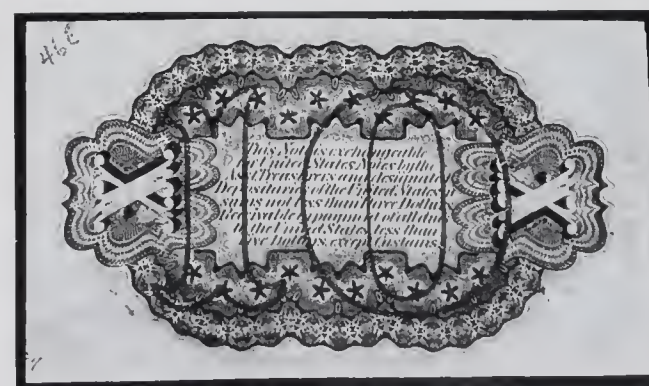 This Note is exchangeable
for United States Notes by the
Treasurers and designated
Depositaries of the United States
in sums not less than three Dollars
Receivable in payment of all dues
to the United States less than
Five Dollars except Customs